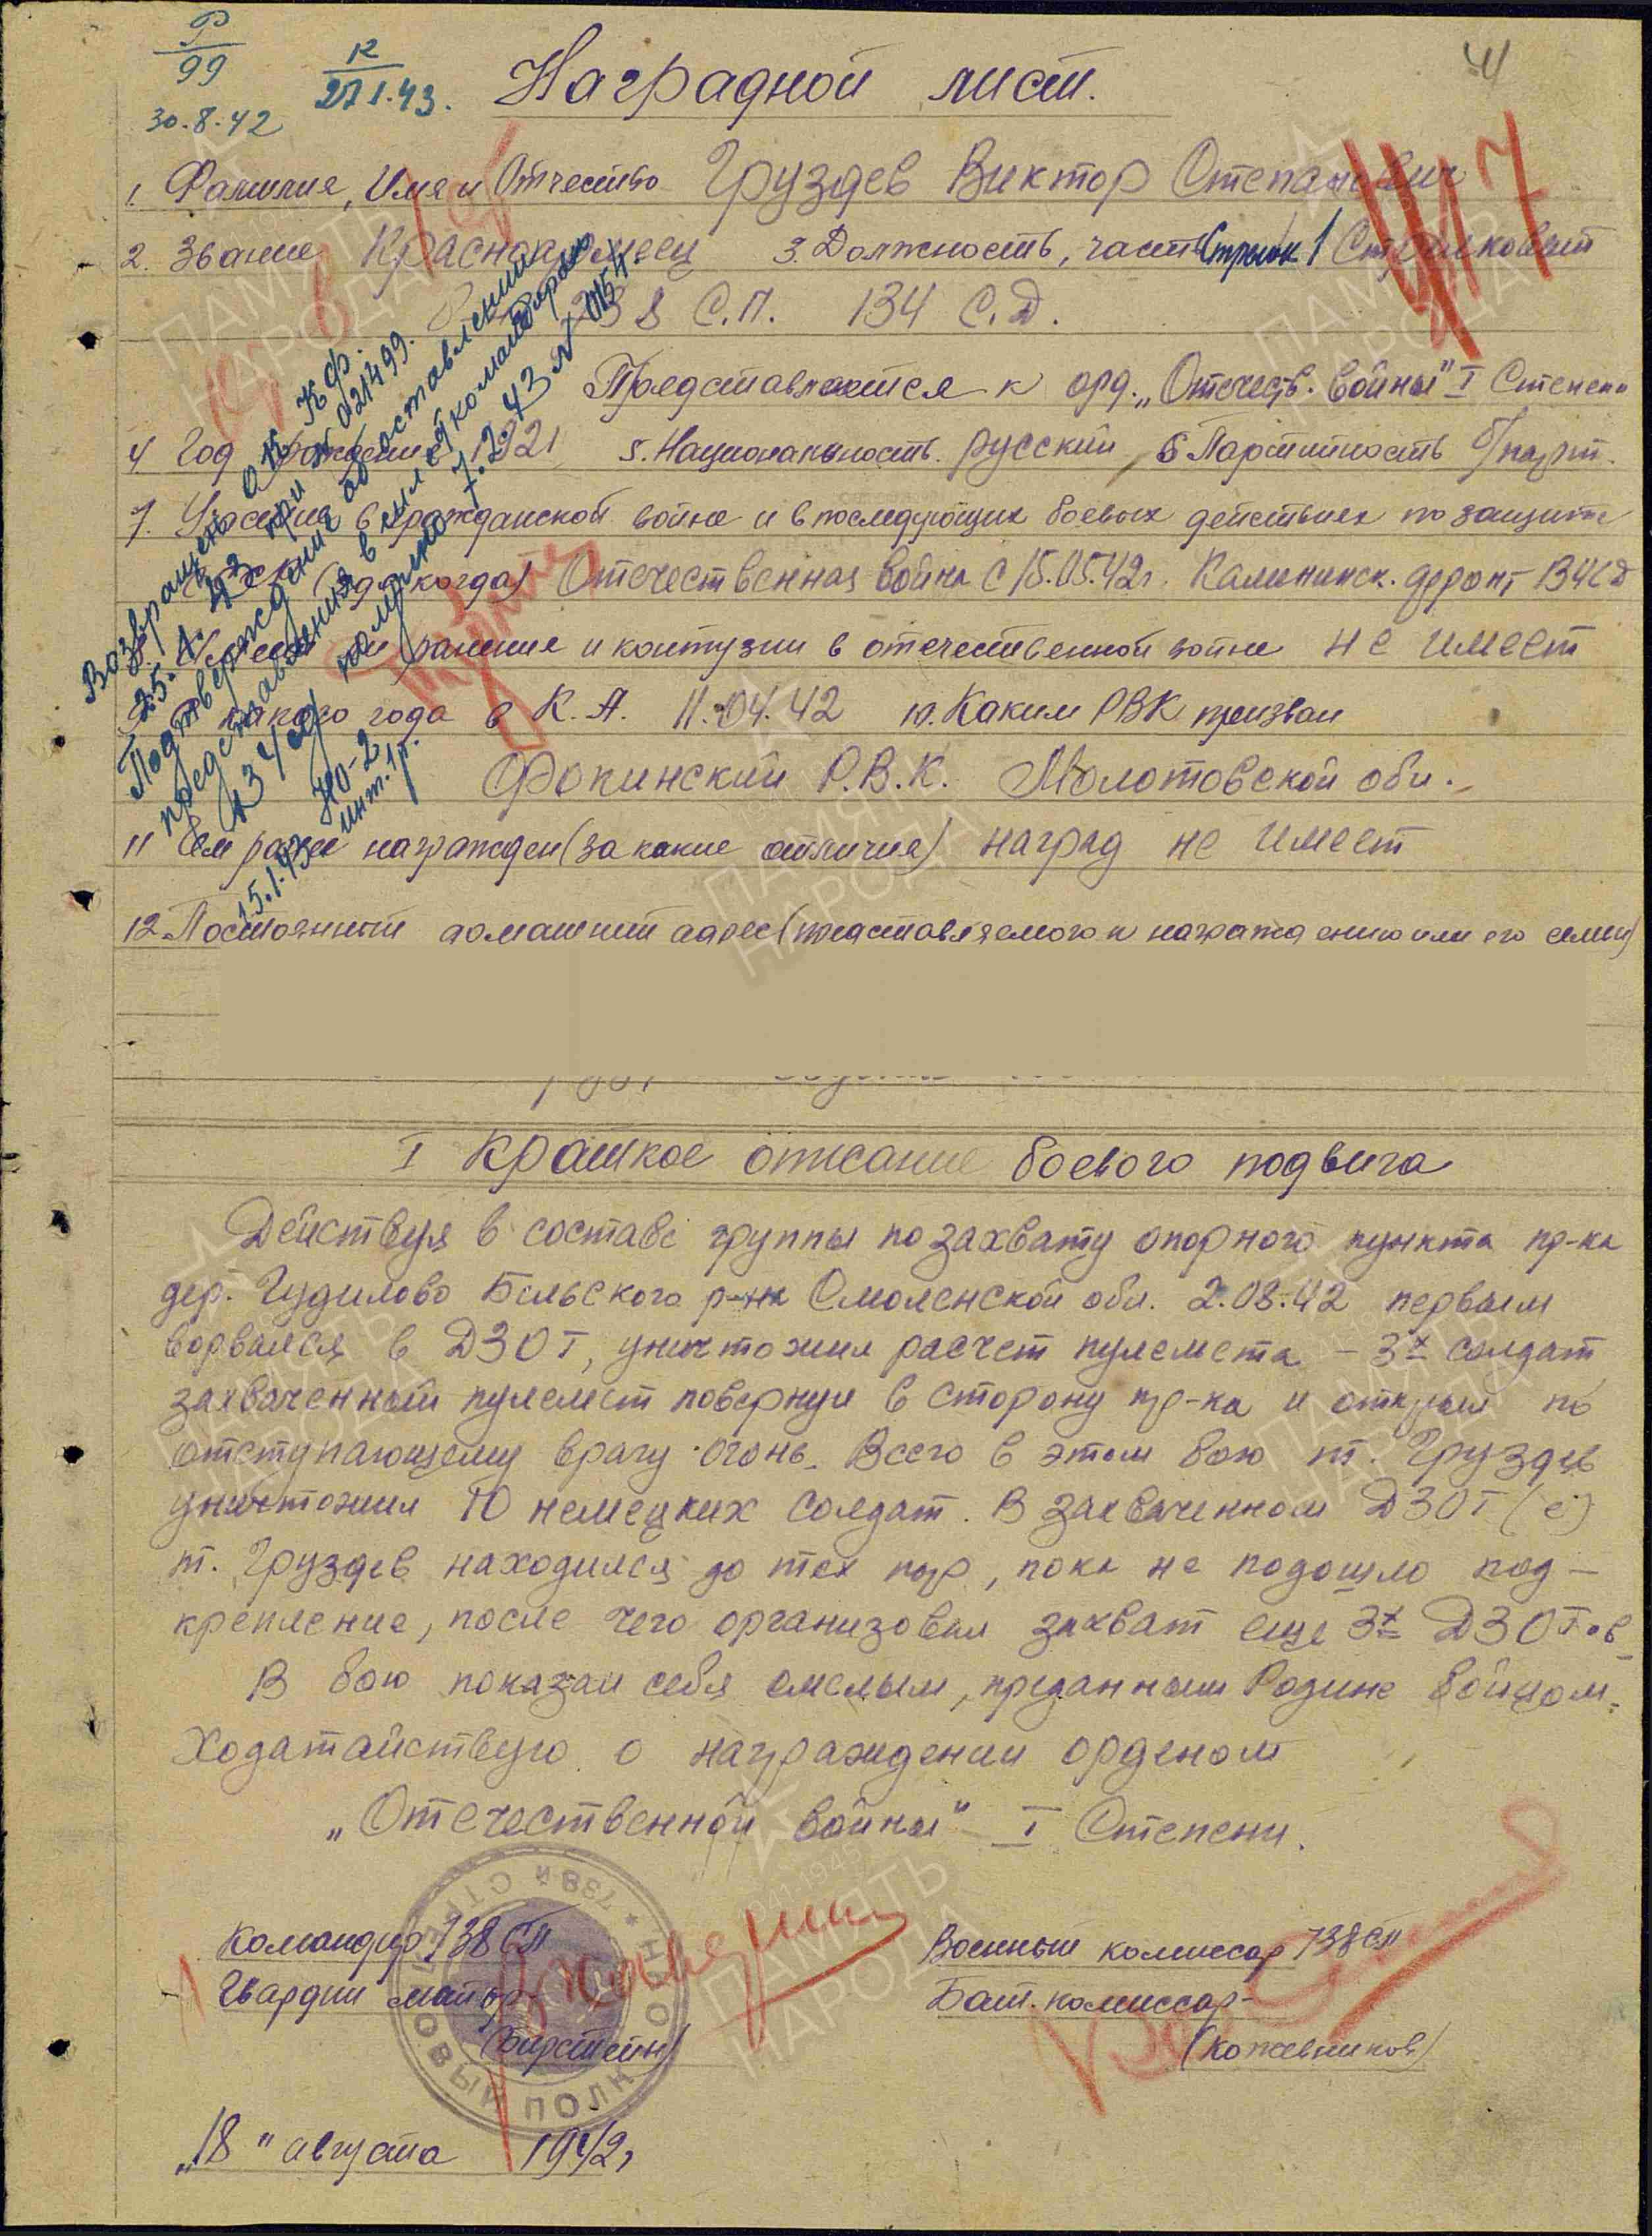 Р/99
30.8.42
К/27.1.43.
Наградной лист.
1. Фамилия, Имя и Отчество Груздев Виктор Степанович
2. Звание Красноармеец 3. Должность, часть Стрелок 1 Стрелков. бат
738 С.П. 134 С.Д.
Представляется к орд. „Отечеств. войны" I Степени
4 Год рождения 1921 5. Национальность. русский 6 Партийность б/парт.
7. Участие в гражданской войне и в последующих боевых действиях по защите
СССР (где когда) Отечественная война с 15.05.42г. Калининск. фронт 134СД
8. Имеет ли ранения и контузии в отечественной войне не имеет
9. С какого года в К.А. 11.04.42 10. Каким РВК призван
Фокинский Р.В.К. Молотовской обл.
11 Чем ранее награжден (за какие отличия) наград не имеет
12. Постоянный домашний адрес (представляемого к награждению или его семьи)
Возвращен ОК КФ.
25.1.43 при № 021499.
Подтверждение об оставлении
представления в силе командиром
134 сд получено 7.2.43 № 0154.
НО-2
15.1.43 инт. 1р.
417
I Краткое описание боевого подвига
Действуя в составе группы по захвату опорного пункта пр-ка
дер. Гудилово Бельского р-на Смоленской обл. 2.08.42 первым
ворвался в ДЗОТ, уничтожил расчет пулемета – 3х солдат
захваченный пулемет повернул в сторону пр-ка и открыл по
отступающему врагу огонь. Всего в этом бою т. Груздев
уничтожил 10 немецких солдат. В захваченном ДЗОТ(е)
т. Груздев находился до тех пор, пока не подошло под-
крепление, после чего организовал захват еще 3х ДЗОТ-ов
В бою показал себя смелым, преданным Родине бойцом.
Ходатайствую о награждении орденом
„Отечественной войны" I Степени.
Командир 738 СП
Гвардии майор-
(Бирстейн)
Военный комиссар 738 СП
Бат. комиссар-
(Кожевников)
738й СТРЕЛКОВЫЙ ПОЛК
„18" августа 1942г
ПАМЯТЬ НАРОДА
1941-1945